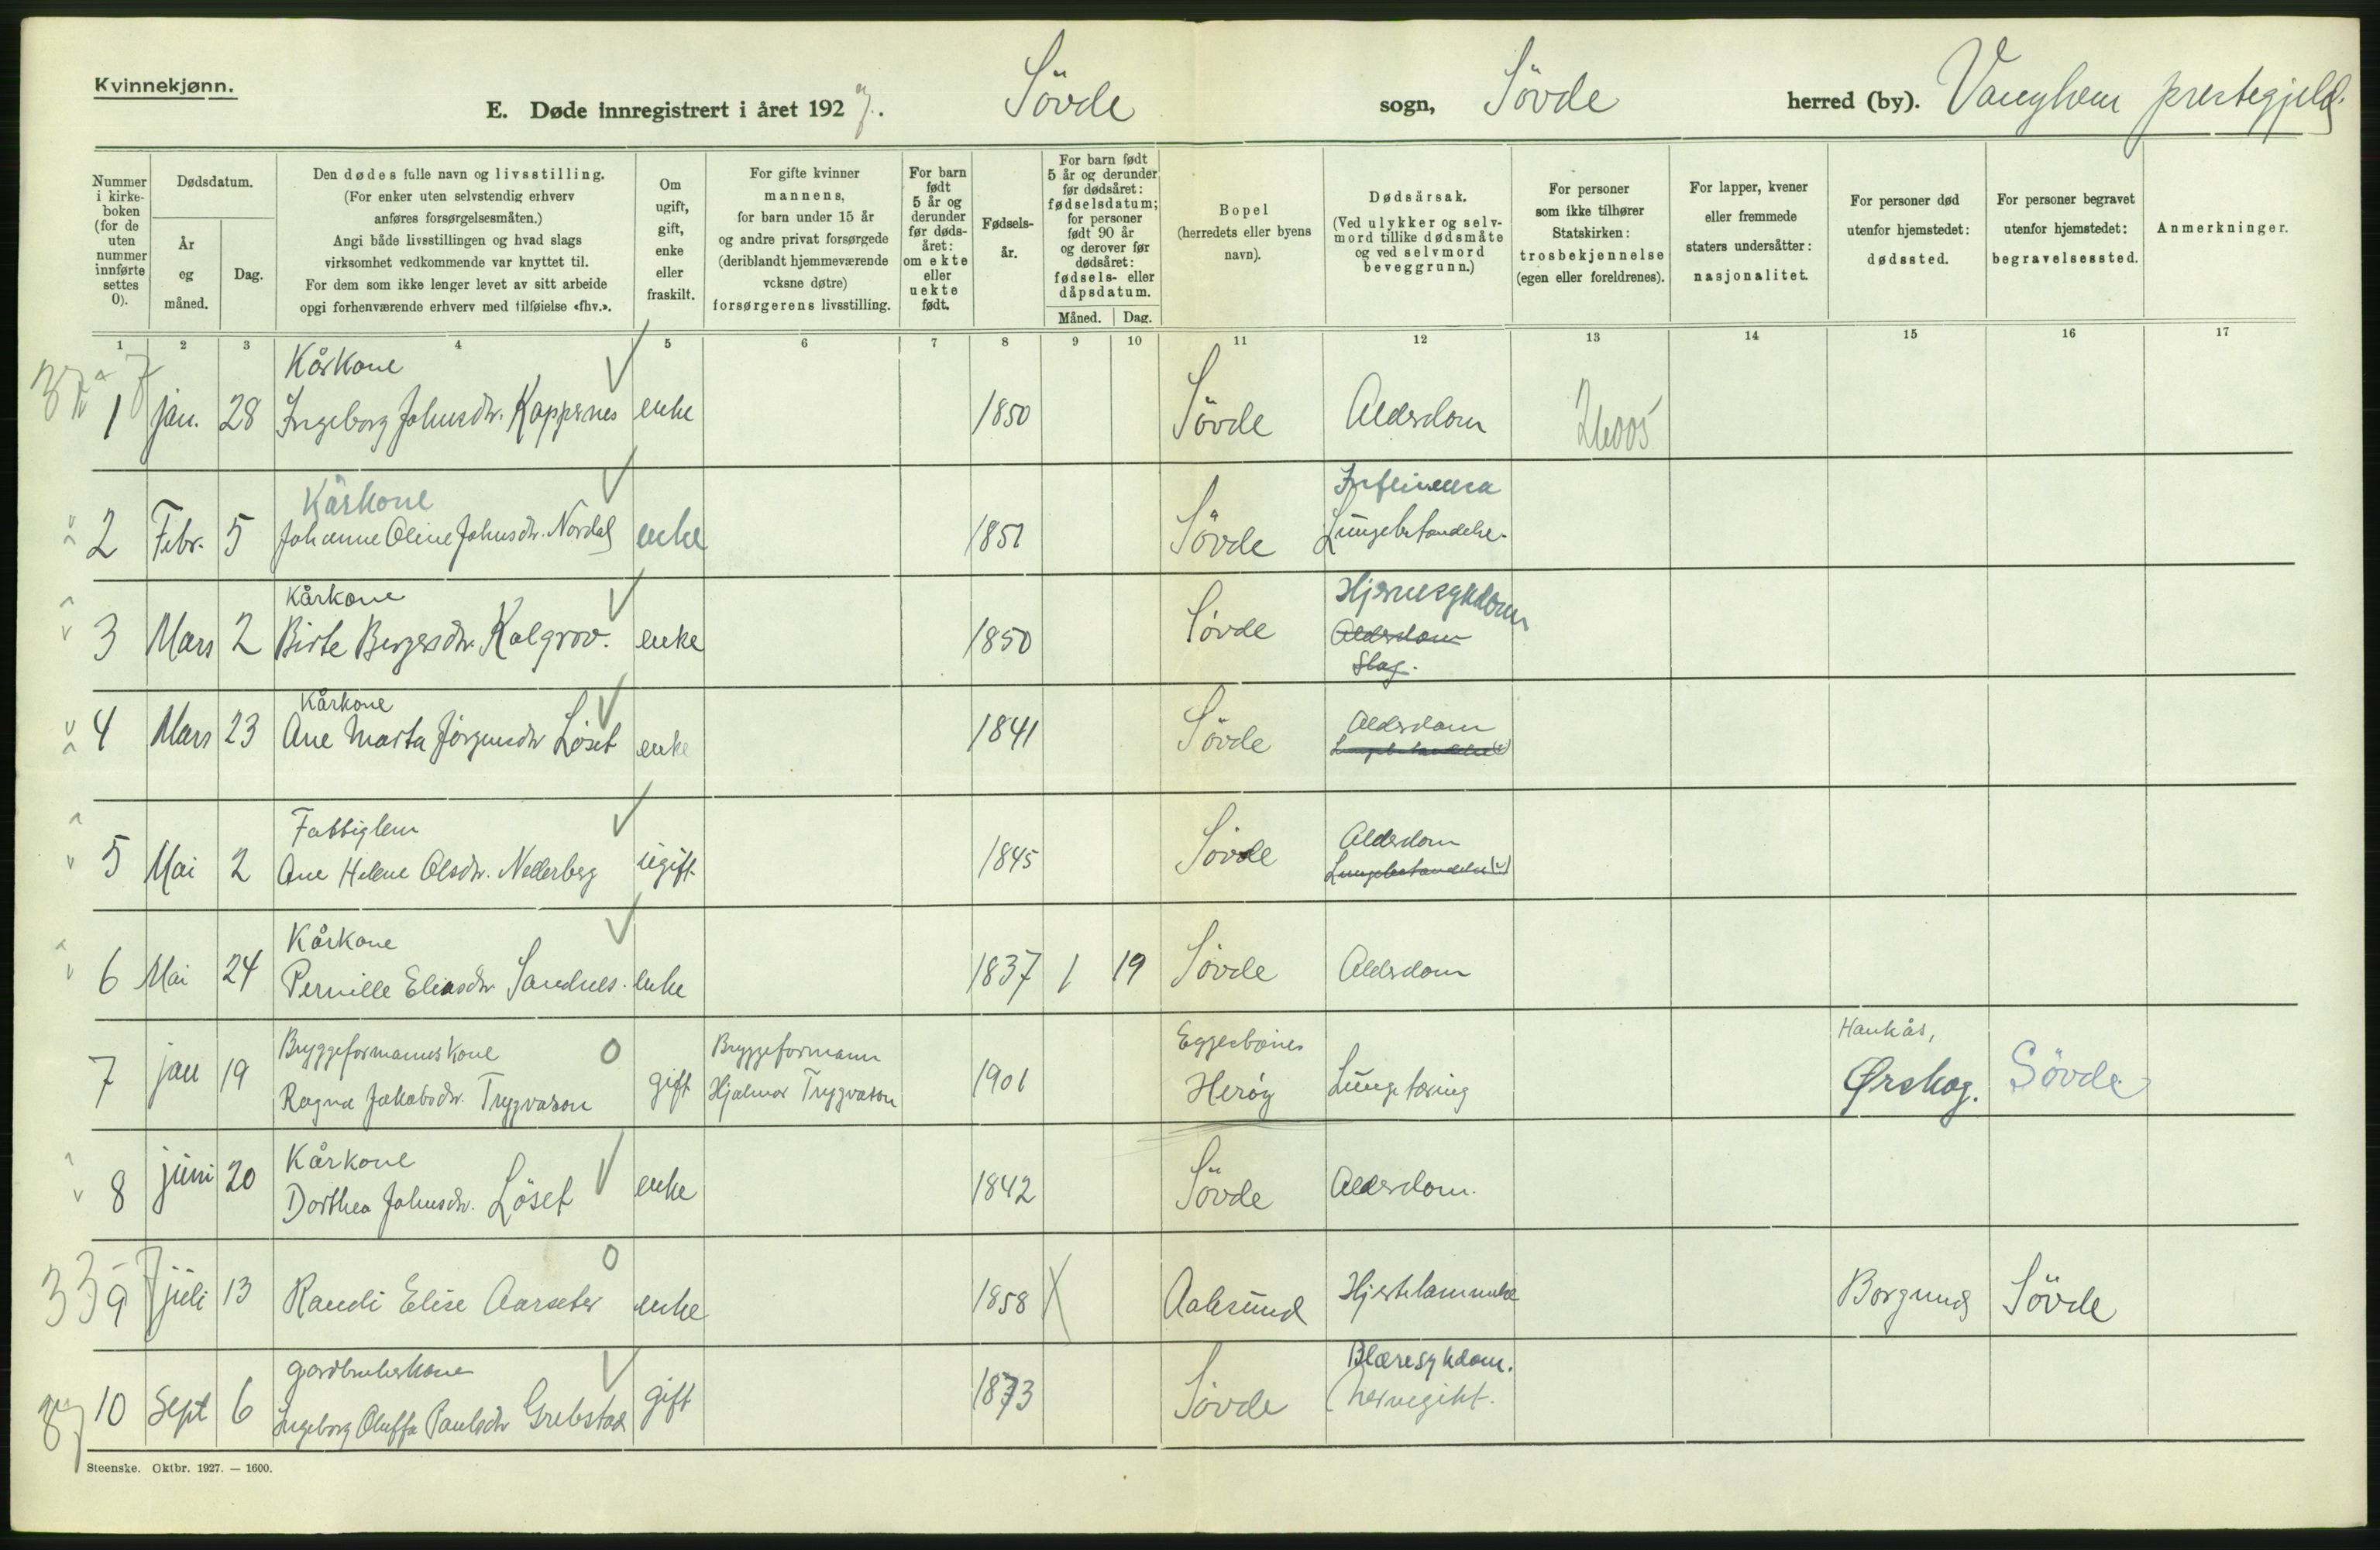 Kvinnekjønn.
E. Døde innregistrert i året 1927. Sövde sogn, Sövde herred (by). Vanylven prestegjeld.
Nummer i kirkeboken (for de uten nummer innførte settes 0).
Dødsdatum.
År og måned.
Dag.
Den dødes fulle navn og livsstilling.
(For enker uten selvstendig erhverv
anføres forsørgelsesmåten.)
Angi både livsstillingen og hvad slags
virksomhet vedkommende var knyttet til.
For dem som ikke lenger levet av sitt arbeide
opgi forhenværende erhverv med tilføielse «fhv.».
Om ugift, gift, enke eller fraskilt.
For gifte kvinner
mannens,
for barn under 15 år
og andre privat forsørgede
(deriblandt hjemmeværende
voksne døtre)
forsørgerens livsstilling.
For barn født 5 år og derunder før dødsåret: om ekte eller uekte født.
Fødselsår.
For barn født
5 år og derunder
før dødsåret:
fødselsdatum;
for personer
født 90 år
og derover før
dødsåret:
fødsels- eller
dåpsdatum.
Måned. Dag.
Bopel
(herredets eller byens
navn).
Dødsårsak.
(Ved ulykker og selvmord tillike dødsmåte
og ved selvmord
beveggrunn.)
For personer
som ikke tilhører
Statskirken:
trosbekjennelse
(egen eller foreldrenes).
For lapper, kvener
eller fremmede
staters undersåtter:
nasjonalitet.
For personer død
utenfor hjemstedet:
dødssted.
For personer begravet
utenfor hjemstedet:
begravelsessted.
Anmerkninger.
1 2 3 4 5 6 7 8 9 10 11 12 13 14 15 16 17
Kårkone
1 jan. 28 Ingeborg Johnsdtr. Koppernes enke 1850 Sövde Alderdom 26005
Kårkone Influensa
2 Febr. 5 Johanne Oline Johnsdtr. Nordal enke 1851 Sövde Lungebetendelse.
Kårkone Hjernesykdom
3 Mars 2 Birte Bergesdtr. Kalgrov. enke 1850 Sövde Alderdom
Slag.
Kårkone Alderdom
4 Mars 23 Ane Marta Jörgensdtr Löset enke 1841 Sövde Lungebetendelse(?)
Fattiglem Alderdom
5 Mai 2 Ane Helene Olsdtr. Nellerberg ugift. 1845 Sövde Lungebetendelse(?)
Kårkone
6 Mai 24 Pernille Eliasdtr Sandnes. enke 1837 1 19 Sövde Alderdom
Bryggeformanns kone O Bryggeformann Eggesbönes Haukås,
7 jan 19 Ragna Jakobsdtr. Trygvason gift Hjalmar Trygvason 1901 Heröy Lungetæring Ørskog. Sövde
Kårkone
8 juni 20 Dorthea Johnsdtr. Löset enke 1842 Sövde Alderdom.
O
9 juli 13 Randi Elise Aarseter enke 1858 X Aalesund Hjertelammelse Borgund Sövde
Gardbrukerkone Blæresykdom.
10 Sept 6 Ingeborg Oluffa Paulsdtr Grebstad gift 1873 Sövde (nervegikt.
Steenske. Oktbr. 1927. — 1600.